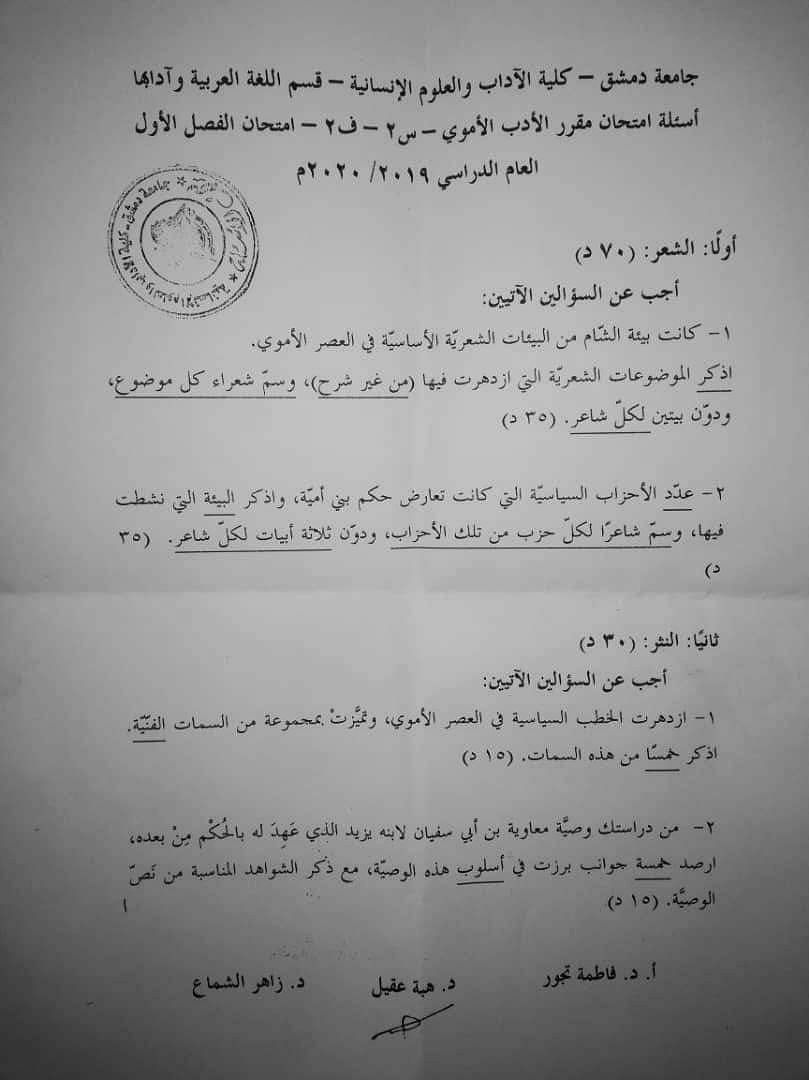 جامعة دمشق – كلية الآداب والعلوم الإنسانية – قسم اللغة العربية وآدابها
أسئلة امتحان مقرر الأدب الأموي – س٢ – ف٢ – امتحان الفصل الأول
العام الدراسي ٢٠١٩/ ٢٠٢٠م
جامعة دمشق - كلية الآداب والعلوم الإنسانية
أولًا: الشعر: (٧٠ د)
أجب عن السؤالين الآتيين:
١- كانت بيئة الشّام من البيئات الشعريّة الأساسيّة في العصر الأموي.
اذكر الموضوعات الشعريّة التي ازدهرت فيها (من غير شرح)، وسمّ شعراء كل موضوع،
ودوّن بيتين لكلّ شاعر. (٣٥ د)
٢- عدّد الأحزاب السياسيّة التي كانت تعارض حكم بني أميّة، واذكر البيئة التي نشطت
فيها، وسمّ شاعرًا لكلّ حزب من تلك الأحزاب، ودوّن ثلاثة أبيات لكلّ شاعر. (٣٥
د)
ثانيًا: النثر: (٣٠ د)
أجب عن السؤالين الآتيين:
١- ازدهرت الخطب السياسية في العصر الأموي، وتميَّزتْ بمجموعة من السمات الفنّيّة.
اذكر خمسًا من هذه السمات. (١٥ د)
٢- من دراستك وصيَّة معاوية بن أبي سفيان لابنه يزيد الذي عَهِدَ له بالحُكْم مِنْ بعده،
ارصد خمسة جوانب برزت في أسلوب هذه الوصيّة، مع ذكر الشواهد المناسبة من نَصّ
الوصيَّة. (١٥ د)
أ. د. فاطمة تجور
د. هبة عقيل
د. زاهر الشماع